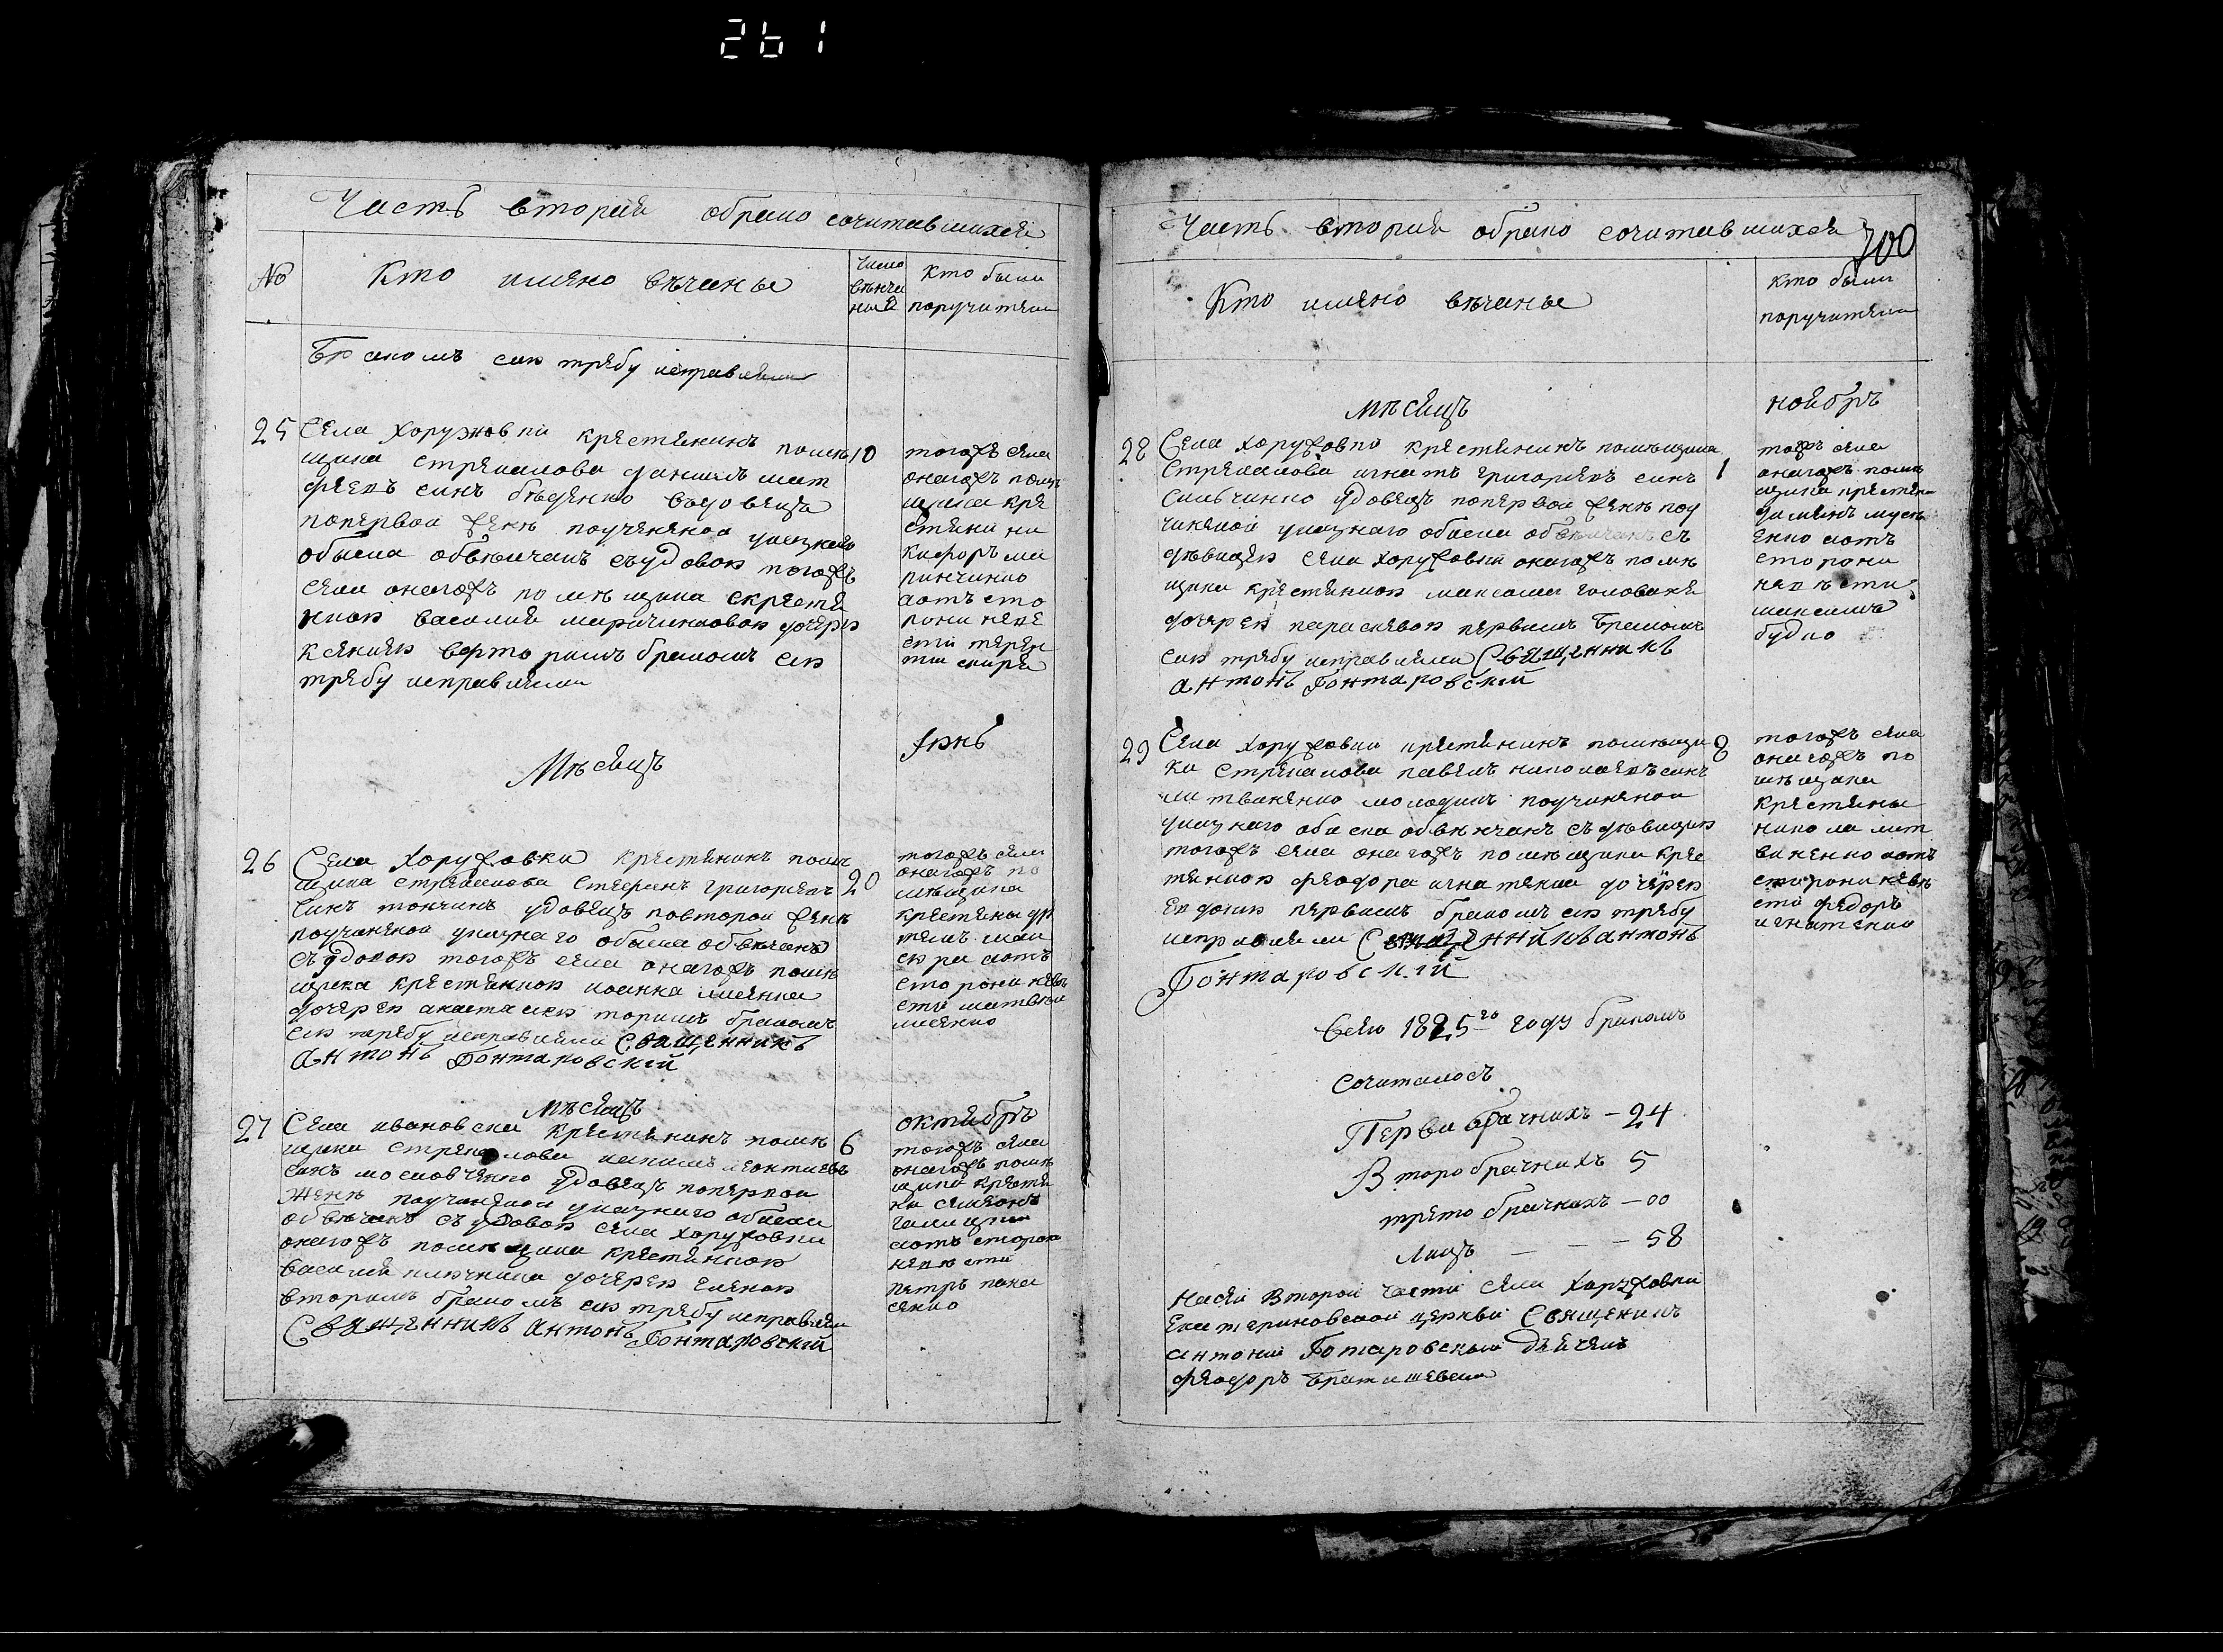 261
Часть вторая обрако сочитавшихся
№
Кто имяно вѣчаны
Число
вѣнча
ния
Кто были
поручители
Бракомъ сию трябу исправляли
25
Села Хоружовки крестянинъ помѣ
щика Стрякалова Даниилъ мат
фѣевъ синъ бѣденко въдовецъ
попервой женѣ поучиненой указнаго
обыска обвѣнчанъ съудовою тогожъ
села оногожъ помѣщика скрестя
ниою василия маринчиковои дочерю
ксениею вофторимъ бракомъ сию
трябу исправляли
10
тогожъ села
оногожъ помѣ
щика кре
стяни ни
кифоръ ма
ринчинко
аотъ сто
рони неве
сти терен
тии скиря
Мѣсяцъ
Іюнь
26
Села Хоружовки крестянинъ помѣ
щика стрякалова Стефанъ григориевъ
синъ тончинъ удовецъ повторой женѣ
поучиненой указнаго обыска обвѣчанъ
съудовою тогожъ села оногожъ помѣ
щика крестянкою иоанна
дочерею анастасиею торимъ бракомъ
сию трябу исправляли Священникъ
Антонъ Гонтаровскій
20
тогожъ села
оногожъ по
мѣщика
крестяны ар
темъ
аотъ
сторони невѣ
сти матвѣи
Мѣсяцъ
октябрь
27
Села ивановски крестянинъ помѣ
щика Стрякалова леонтиевъ
синъ московченко удовецъ попервои
женѣ поучиненои указнаго обыска
обвѣчанъ съ удовою села хоружовки
оногожъ помѣщика крестянкою
василия ключника дочерею еленою
вторимъ бракомъ сию трябу исправляли
Священникъ Антонъ Гонтаровскій
6
тогожъ села
оногожъ помѣ
щика крестя
ни симеонъ
аотъ сторони
невѣсти
петръ пана
сенко
Часть вторая обрако сочитавшихся
700
Кто имяно вѣчаны
Кто были
поручители
мѣсяцъ
ноябръ
28
Села хоружовки крестянинъ помѣщика
Стрякалова игнатъ григориевъ синъ
сильчинко удовецъ попервой женѣ поу
чиненой указнаго обыска обвѣнчанъ съ
дѣвицею села хоружовки оногожъ помѣ
щика крестянкою максима голованя
дочерею параскевою первимъ бракомъ
сию трябу исправляли Священникъ
антонъ Гонтаровскій
1
тожъ села
оногожъ помѣ
щика крестяни
дамянъ мусѣ
енко аотъ
сторони
невѣсти
максимъ
будко
29
Села хоружовки крестянинъ помѣщи
ка стрякалова павелъ николаевъ синъ
литвиненко молодикъ поучиненои
указнаго обыска обвѣнчанъ съ дѣвицею
тогожъ села оногожъ помѣщика крес
тянкою феодора игнатенка дочерею
евдокиею первимъ бракомъ сию трябу
исправляли Священникъ антонъ
Гонтаровскій
8
тогожъ села
оногожъ по
мѣщика
крестяны
никола лит
виненко аотъ
сторони невѣ
сти федоръ
игнатенко
Всего 1825го году бракомъ
сочиталось
Первибрачнихъ — 24
Второбрачнихъ 5
третобрачнихъ — 00
Лицъ — — — 58
Насей второй части села Хоружовки
Екатериновской церкви Священикъ
антоний Готаровскый Дьячекъ
феодоръ